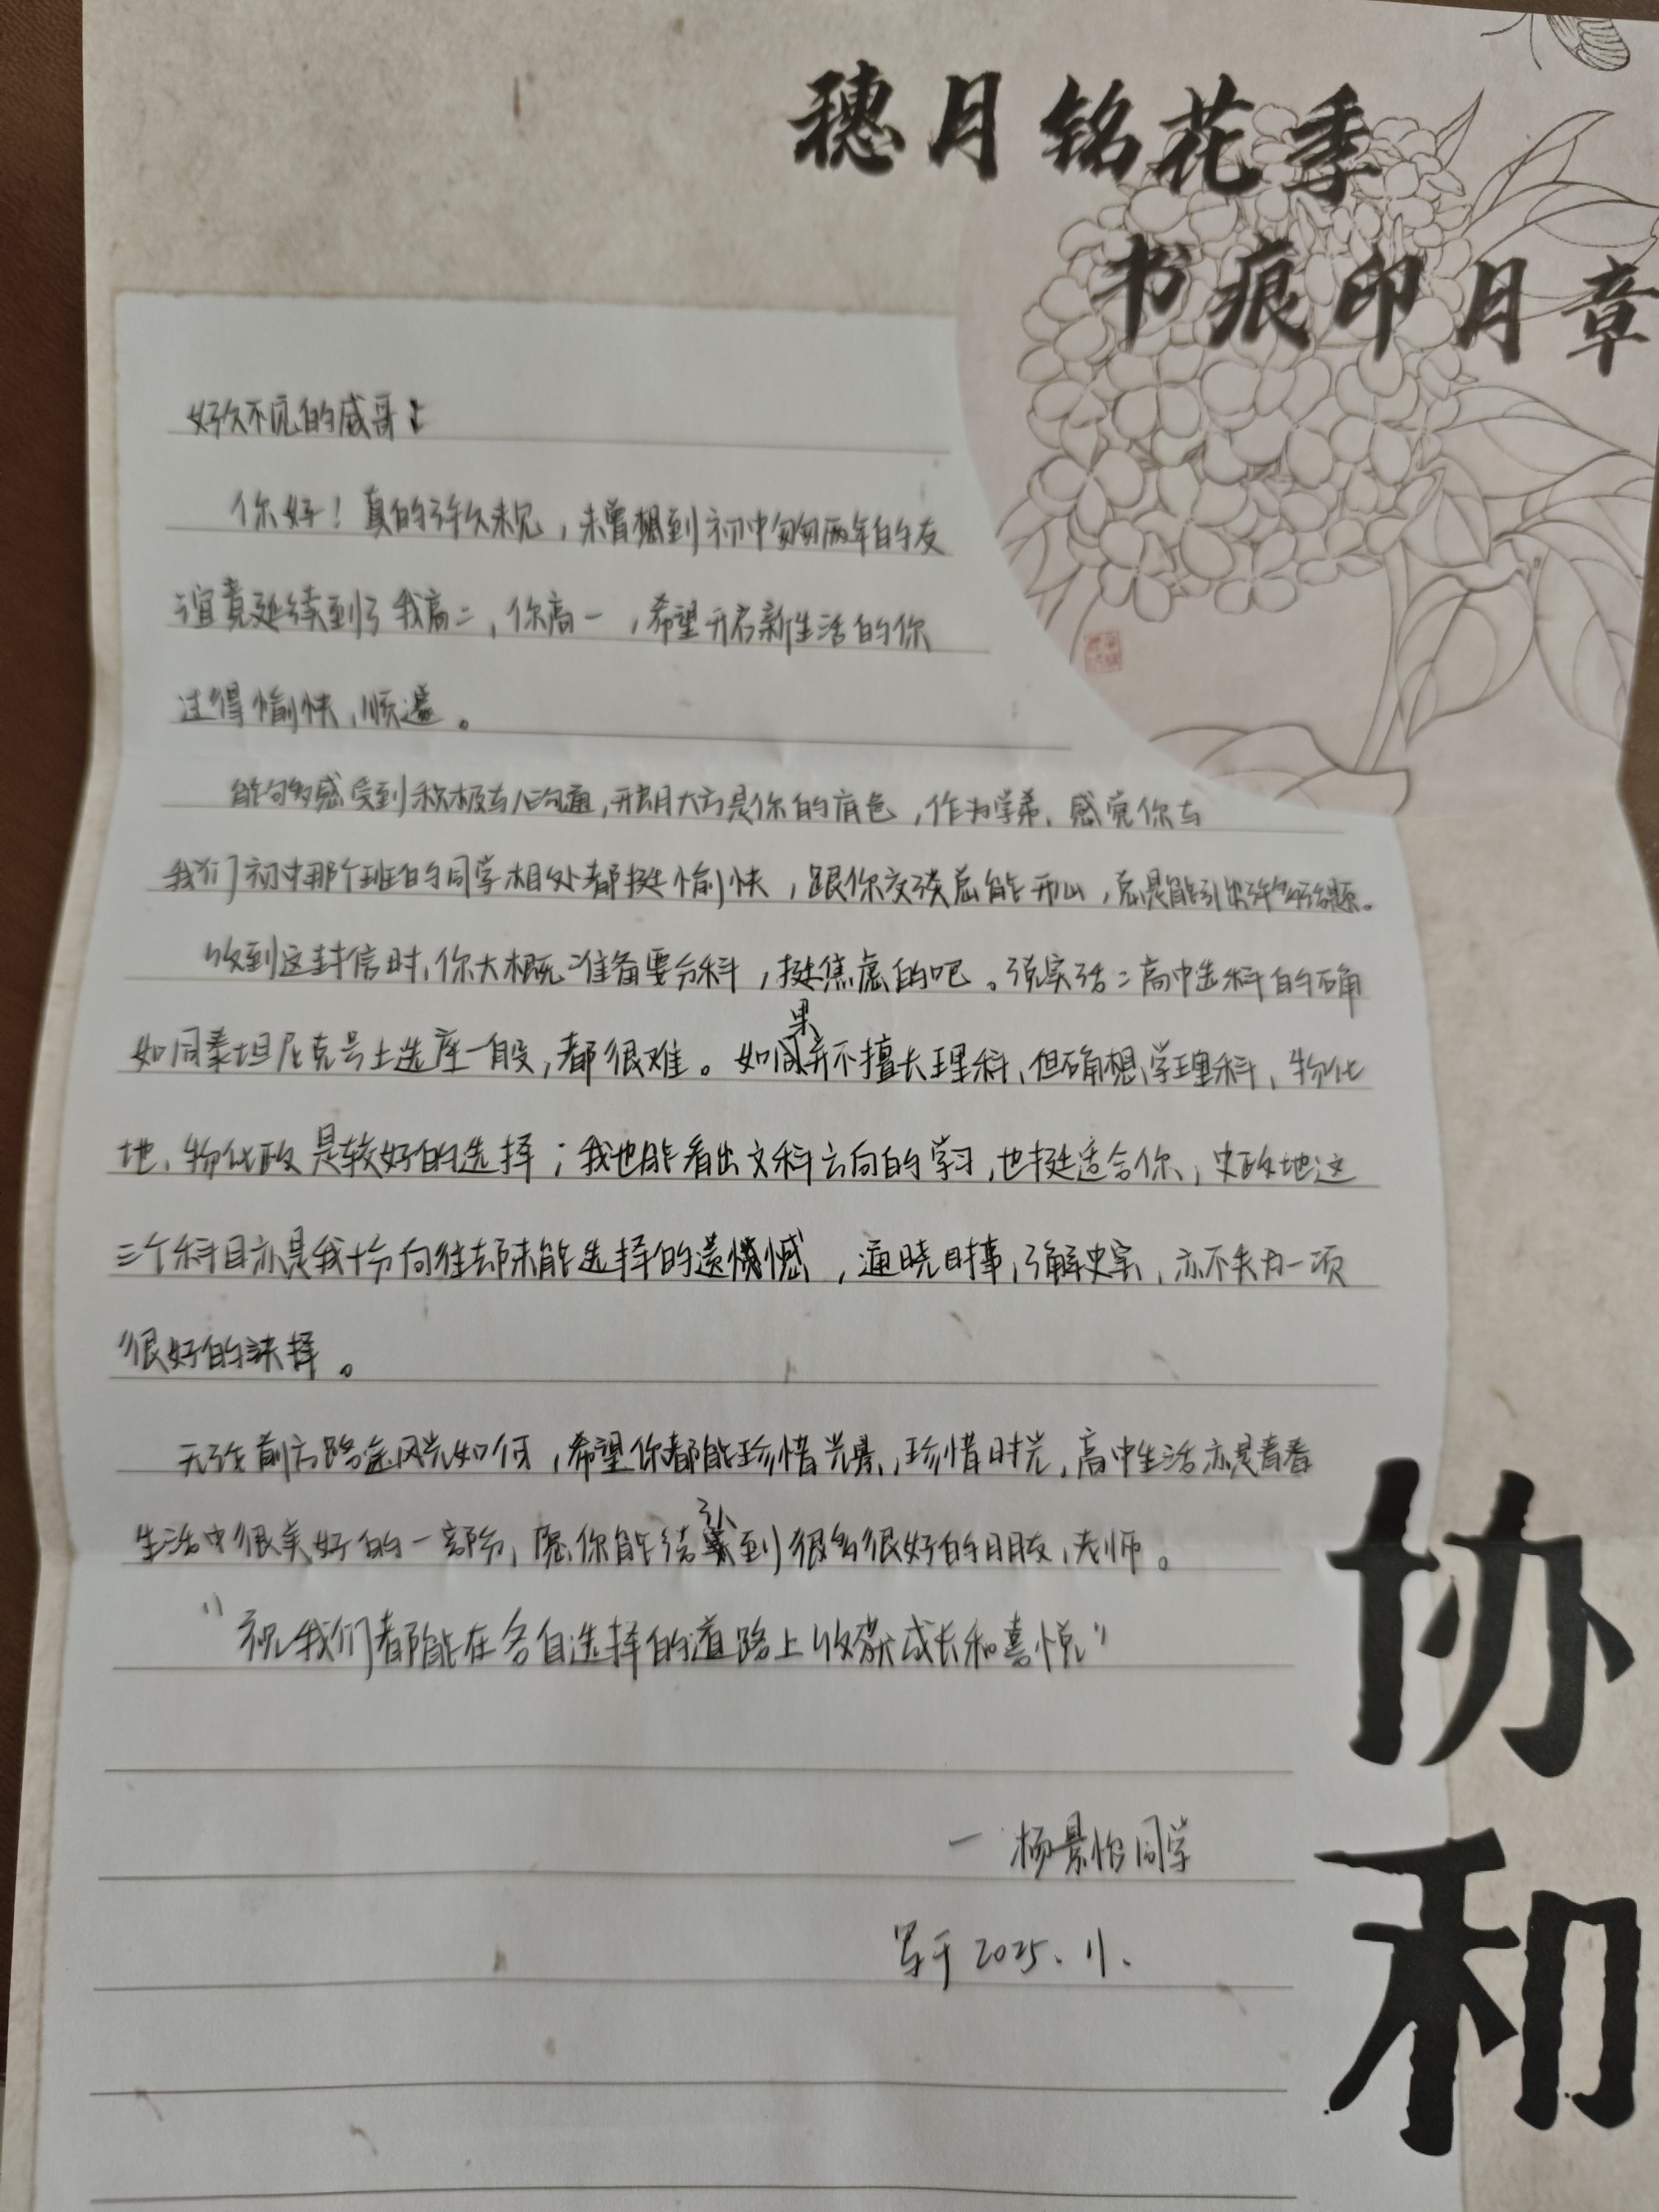 穗月铭花季
书痕印月章
好久不见的威哥：
你好！真的许久未见，未曾想到初中匆匆两年的友
谊竟延续到了我高二，你高一，希望开启新生活的你
过得愉快，顺遂。
能够感受到积极与人沟通，开朗大方是你的底色，作为学弟，感觉你与
我们初中那个班的同学相处都挺愉快，跟你交谈总能开心，总是能引出许多话题。
收到这封信时，你大概准备要分科，挺焦虑的吧。说实话：高中选科的确
如同泰坦尼克号上选座一般，都很难。如果并不擅长理科，但确想学理科，物化
地、物化政是较好的选择；我也能看出文科方向的学习，也挺适合你，史政地这
三个科目亦是我十分向往却未能选择的遗憾，通晓时事，了解史实，亦不失为一项
很好的抉择。
无论前方路途风光如何，希望你都能珍惜光景，珍惜时光，高中生活亦是青春
生活中很美好的一部分，愿你能结引到很多很好的朋友，老师。
“祝我们都能在各自选择的道路上收获成长和喜悦”
— 杨景怡同学
写于 2025. 11.
协和